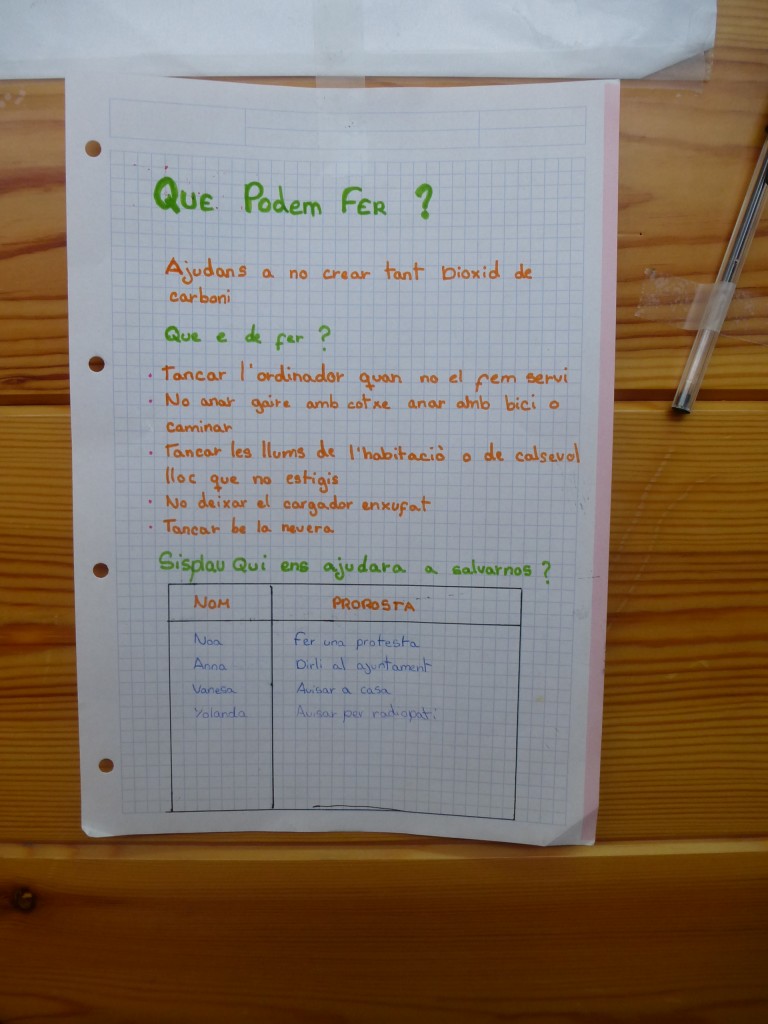 Que Podem Fer ?
Ajudans a no crear tant Dioxid de
carboni
Que e de fer ?
· Tancar l'ordinador quan no el fem servi
· No anar gaire amb cotxe anar amb bici o
caminar
· Tancar les llums de l'habitaciò o de calsevol
lloc que no estigis
· No deixar el cargador enxufat
· Tancar be la nevera
Sisplau Qui ens ajudara a salvarnos ?
NOM PROPOSTA
Noa Fer una protesta
Anna Dirli al ajuntament
Vanesa Avisar a casa
Yolanda Avisar per radiopati